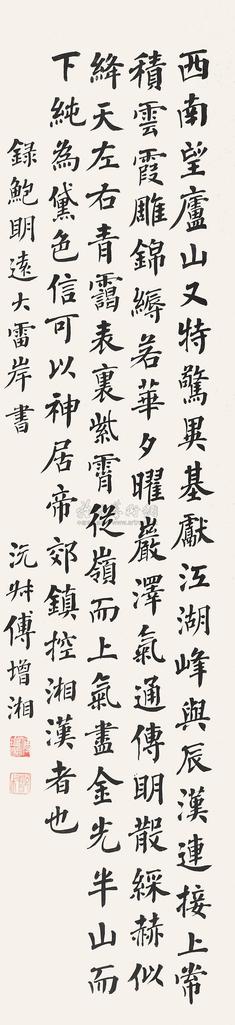 西南望廬山又特驚異基壓江湖峰與辰漢連接上常
積雲霞雕錦縟若華夕曜巖澤氣通傳明散綵赫似
絳天左右青靄表裏紫霄從嶺而上氣盡金光半山而
下純為黛色信可以神居帝郊鎮控湘漢者也
錄鮑明遠大雷岸書
沅叔傅增湘